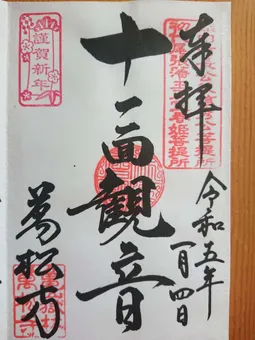 奉拝
令和五年
一月四日
十一面観音
萬松寺
謹賀新年